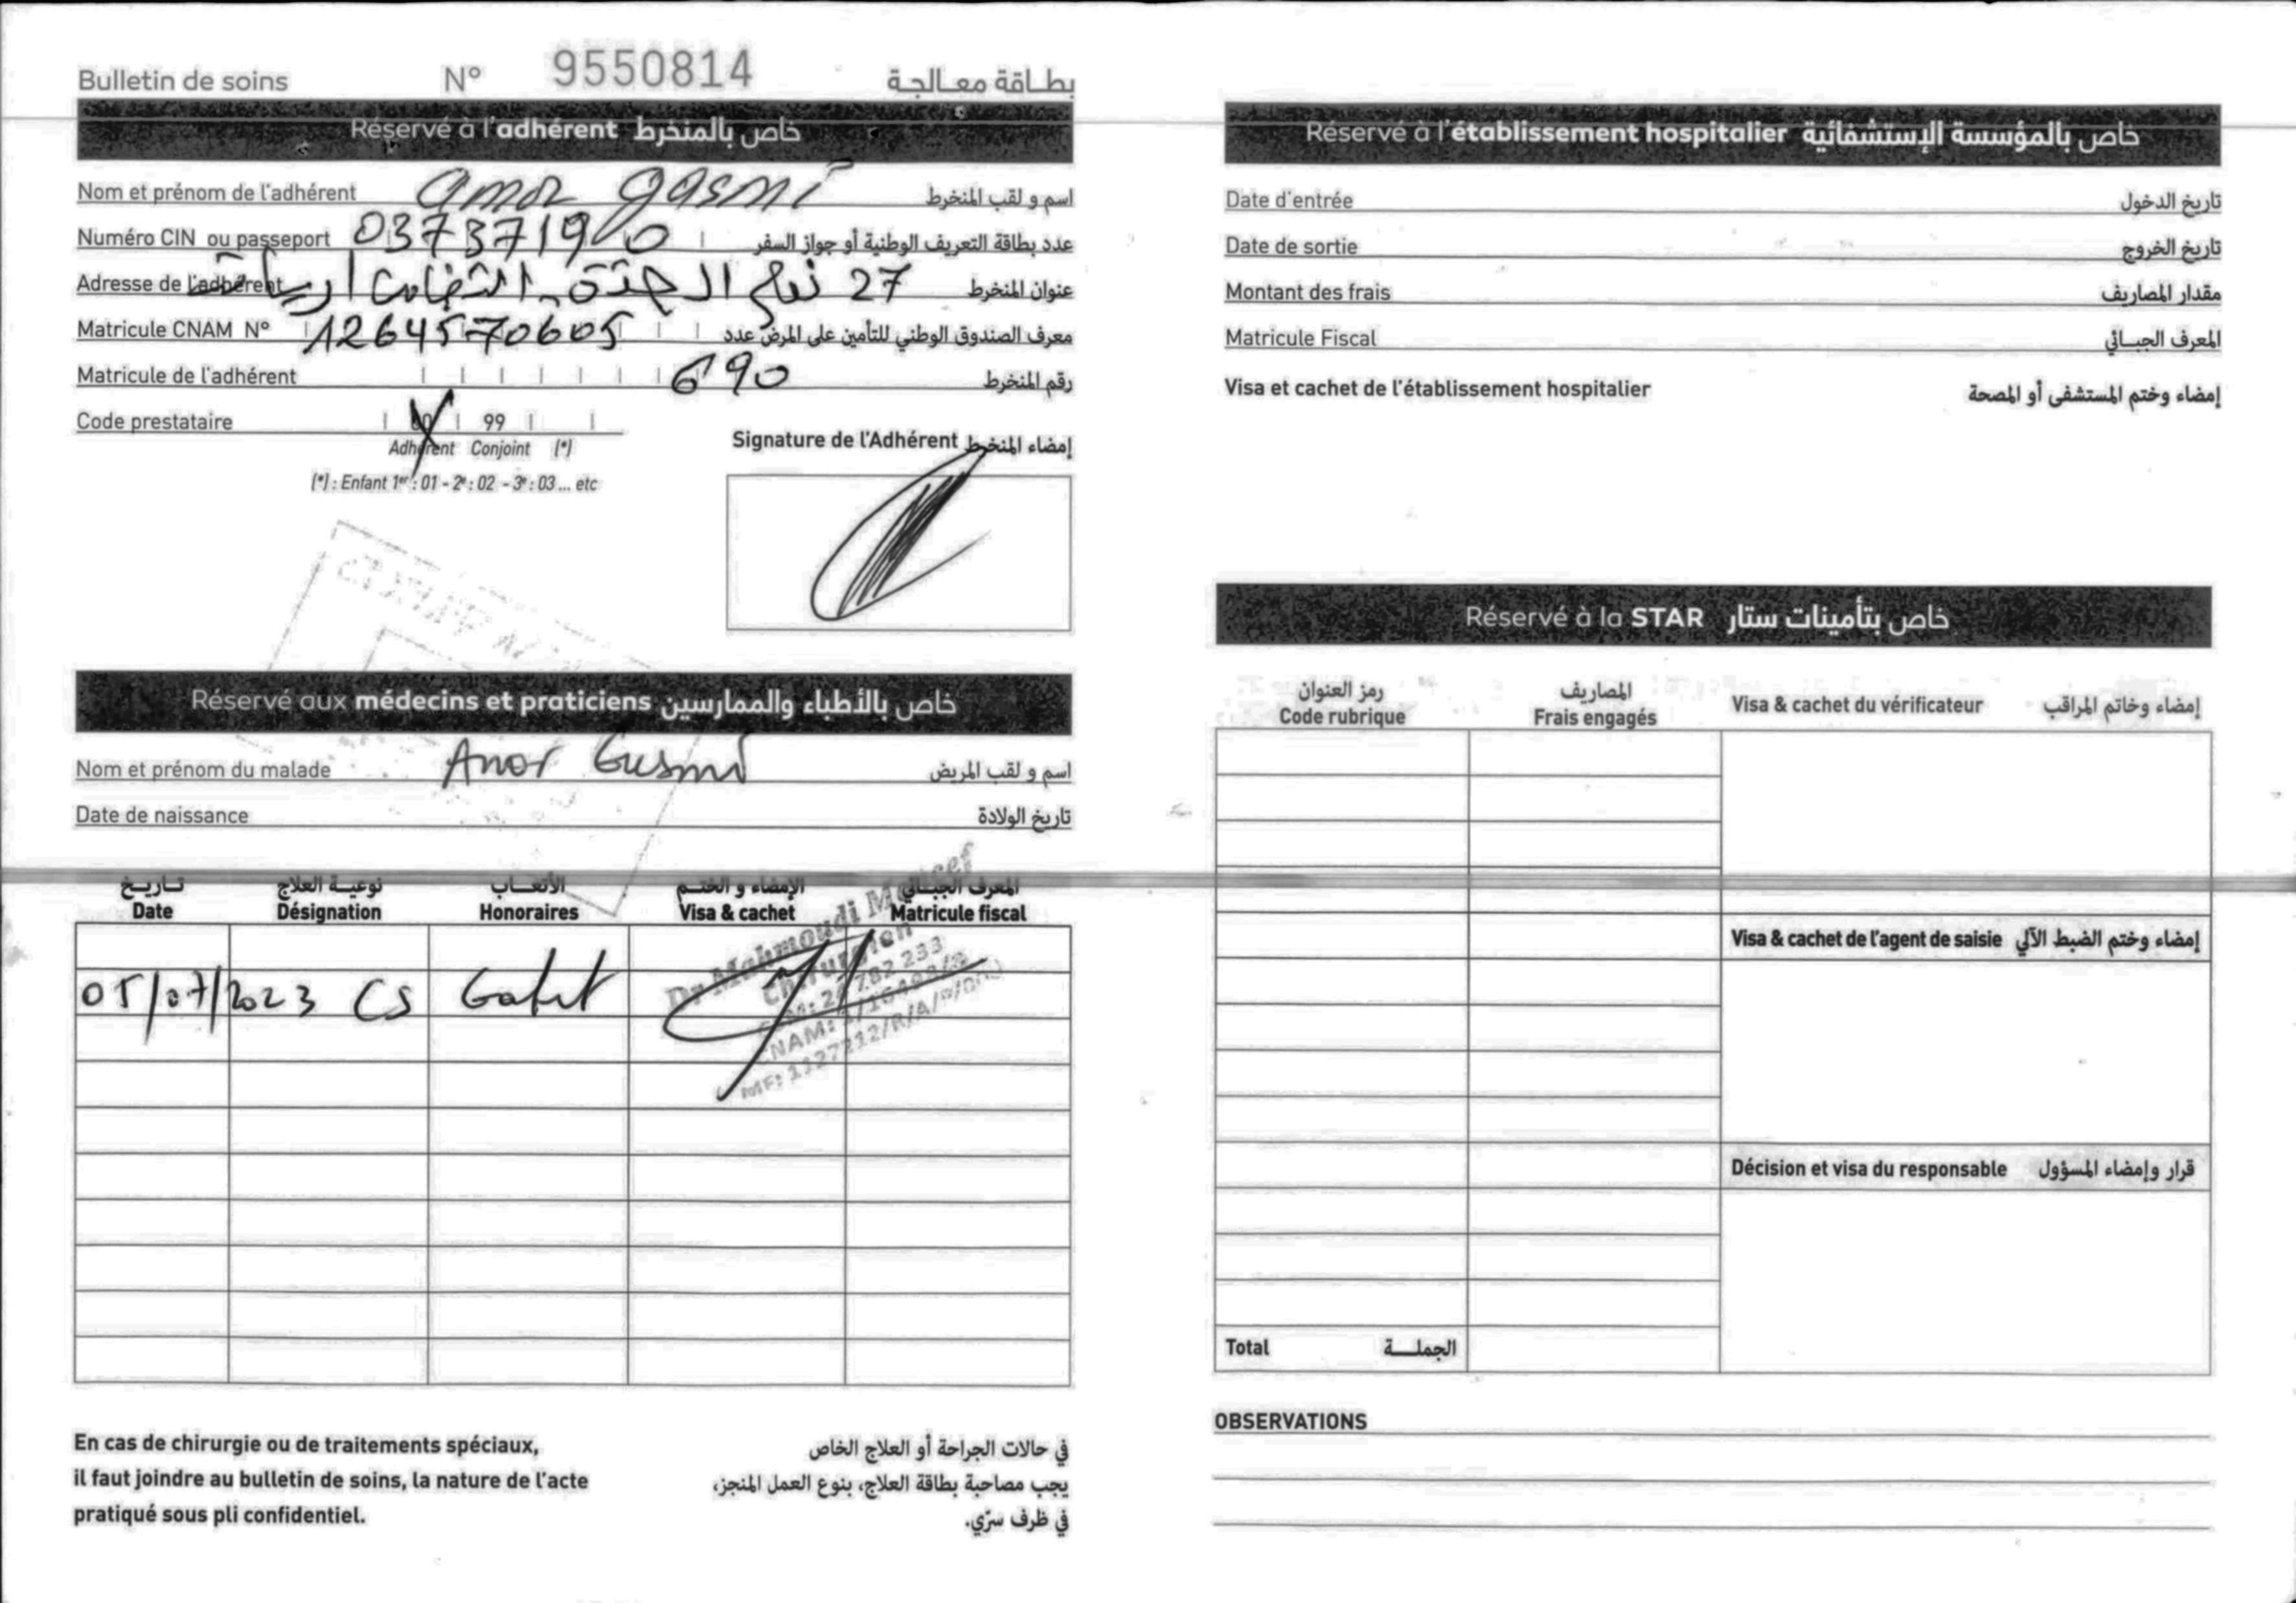 Bulletin de soins N° 9550814 بطاقة معالجة
Réservé à l'adhérent خاص بالمنخرط
Nom et prénom de l'adhérent amor gasmi اسم و لقب المنخرط
Numéro CIN ou passeport عدد بطاقة التعريف الوطنية أو جواز السفر
Adresse de l'adhérent 27 نهج التضامن عنوان المنخرط
Matricule CNAM N° 1264570605 معرف الصندوق الوطني للتأمين على المرض عدد
Matricule de l'adhérent 690 رقم المنخرط
Code prestataire 00 99
Adhérent Conjoint (*)
(*) : Enfant 1er : 01 - 2e : 02 - 3e : 03 ... etc
Signature de l'Adhérent إمضاء المنخرط
Réservé aux médecins et praticiens خاص بالأطباء والممارسين
Nom et prénom du malade Amor Gasmi اسم و لقب المريض
Date de naissance تاريخ الولادة
تاريخ نوعية العلاج الأتعاب الإمضاء و الختم المعرف الجبائي
Date Désignation Honoraires Visa & cachet Matricule fiscal
05/07/2023 CS
Dr Mahmoudi Moncef
Chirurgien
En cas de chirurgie ou de traitements spéciaux,
il faut joindre au bulletin de soins, la nature de l'acte
pratiqué sous pli confidentiel.
في حالات الجراحة أو العلاج الخاص
يجب مصاحبة بطاقة العلاج، بنوع العمل المنجز،
في ظرف سرّي.
Réservé à l'établissement hospitalier خاص بالمؤسسة الإستشفائية
Date d'entrée تاريخ الدخول
Date de sortie تاريخ الخروج
Montant des frais مقدار المصاريف
Matricule Fiscal المعرف الجبائي
Visa et cachet de l'établissement hospitalier إمضاء وختم المستشفى أو المصحة
Réservé à la STAR خاص بتأمينات ستار
رمز العنوان المصاريف
Code rubrique Frais engagés Visa & cachet du vérificateur إمضاء وخاتم المراقب
Visa & cachet de l'agent de saisie إمضاء وختم الضبط الآلي
Décision et visa du responsable قرار وإمضاء المسؤول
Total الجملة
OBSERVATIONS